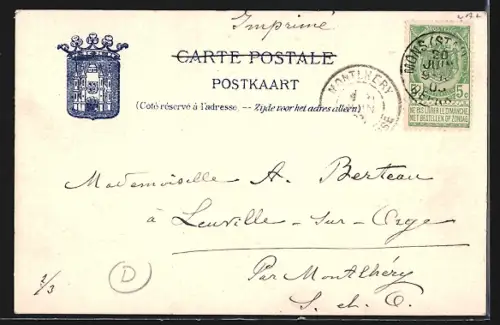 Imprimé
CARTE POSTALE
POSTKAART
(Coté réservé à l'adresse. — Zijde voor het adres alleen)
MONS (ST
20
JUIN
9
05
5c
NE PAS LIVRER LE DIMANCHE
NIET BESTELLEN OP ZONDAG
MONTLHERY
OISE
Mademoiselle A. Berteau
à Leuville-sur-Orge
Par Montlhéry
S. et O.
2/3
D